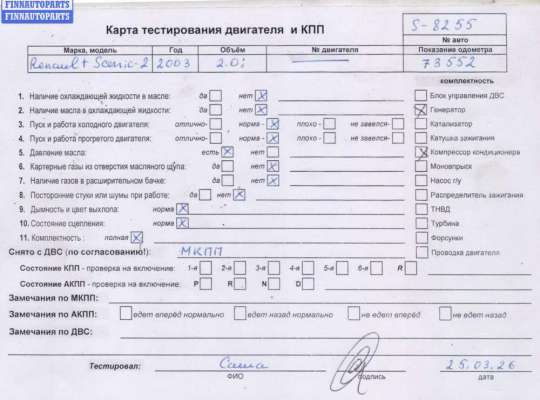 FINNAUTOPARTS
FINNAUTOPARTS
Карта тестирования двигателя и КПП
S-8255
№ авто
Марка, модель Год Объём № двигателя Показание одометра
Renault Scenic-2 2003 2.0i 73552
комплектность
1. Наличие охлаждающей жидкости в масле: да нет Блок управления ДВС
2. Наличие масла в охлаждающей жидкости: да нет Генератор
3. Пуск и работа холодного двигателя: отлично- норма - плохо - не завелся- Катализатор
4. Пуск и работа прогретого двигателя: отлично- норма - плохо - не завелся- Катушка зажигания
5. Давление масла: есть нет Компрессор кондиционера
6. Картерные газы из отверстия масляного щупа: да нет Моновпрыск
7. Наличие газов в расширительном бачке: да нет Насос г/у
8. Посторонние стуки или шумы при работе: да нет Распределитель зажигания
9. Дымность и цвет выхлопа: норма ТНВД
10. Состояние сцепления: норма Турбина
11. Комплектность : полная Форсунки
Снято с ДВС (по согласованию!): МКПП Проводка двигателя
Состояние КПП - проверка на включение: 1-я 2-я 3-я 4-я 5-я 6-я R
Состояние АКПП - проверка на включение: P R N D
Замечания по МКПП:
Замечания по АКПП: едет вперёд нормально едет назад нормально не едет вперёд не едет назад
Замечания по ДВС:
Тестировал: Саша 25.03.26
ФИО подпись дата